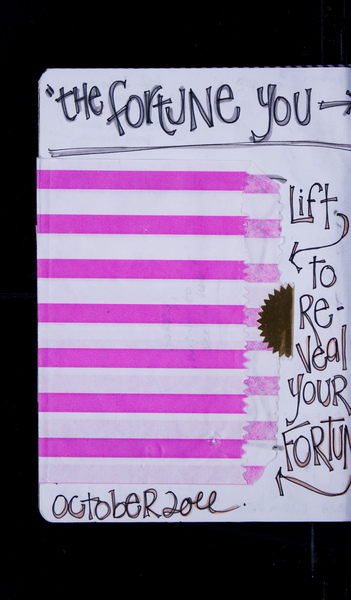 "THE FORTUNE YOU →
Lift
to
RE-
VEAL
YOUR
FORTUN
OCTOBER 2011.